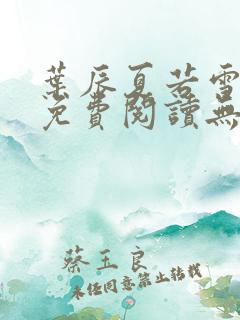 葉辰夏若雪
免費閱讀無
蔡玉良
未经同意禁止转载